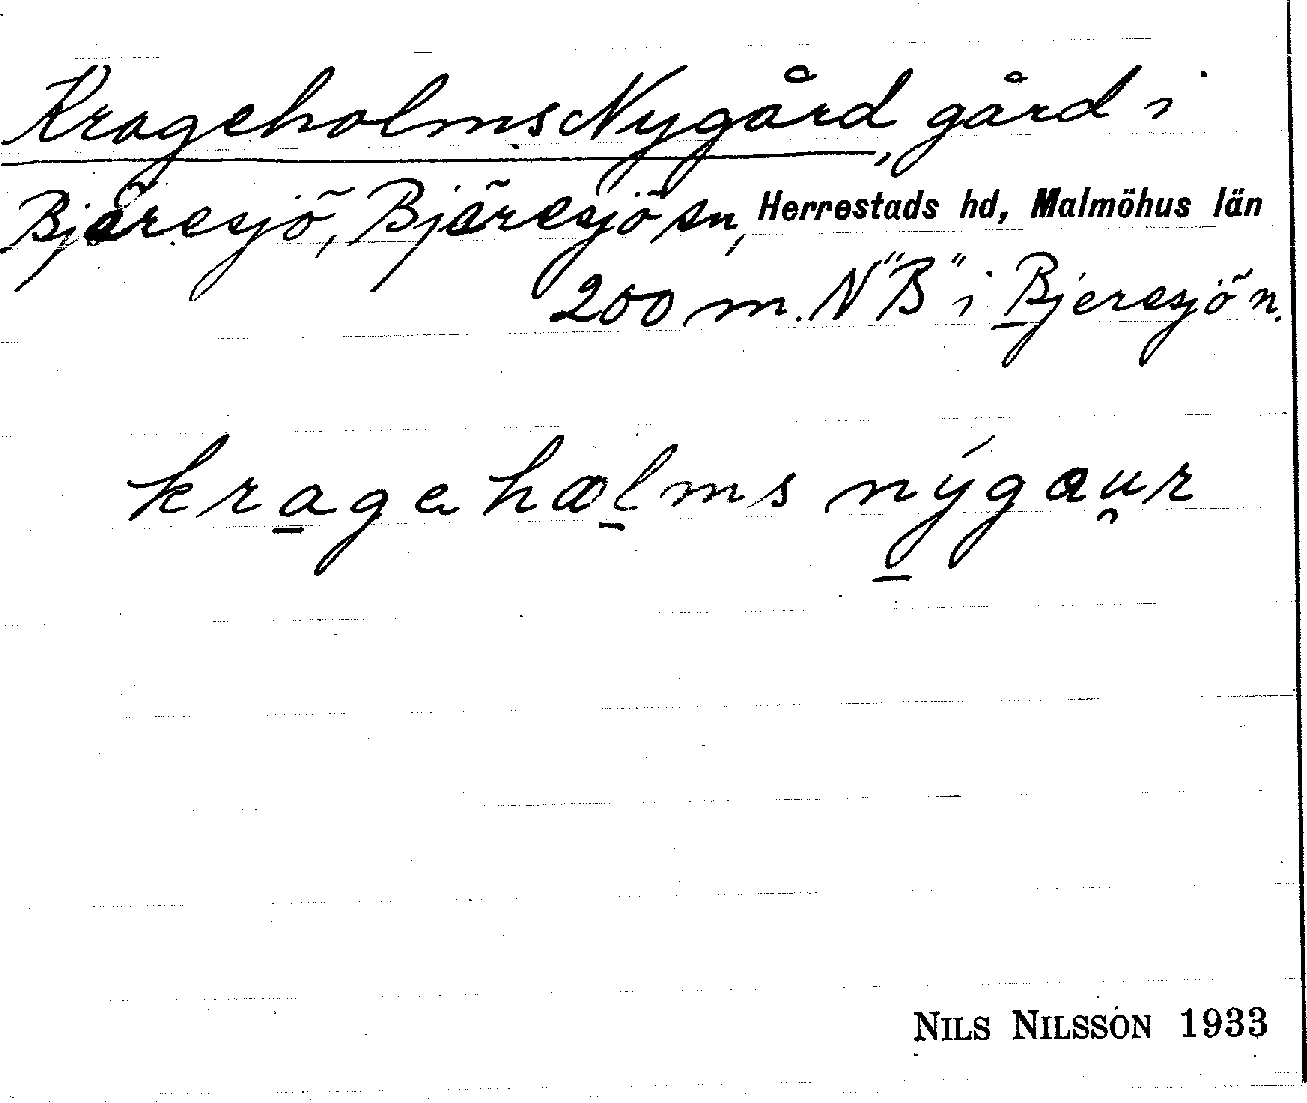 Krageholms Nygård, gård i
Bjäresjö, Bjäresjö sn, Herrestads hd, Malmöhus län
200 m. N "B" i Bjeresjö n.
krageholms nýgau̯r
NILS NILSSON 1933